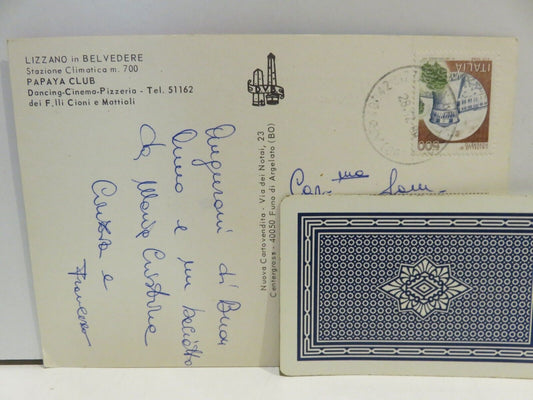 LIZZANO in BELVEDERE
Stazione Climatica m. 700
PAPAYA CLUB
Dancing-Cinema-Pizzeria - Tel. 51162
dei F.lli Cioni e Mattioli
DVB
Nuova Cartovendita - Via dei Notai, 23
Centergross - 40050 Funo di Argelato (BO)
Auguroni di Buon
Anno e un baciotto
da Maria Cristina
Cristina e
Francesco
ITALIA
500
Car.ma